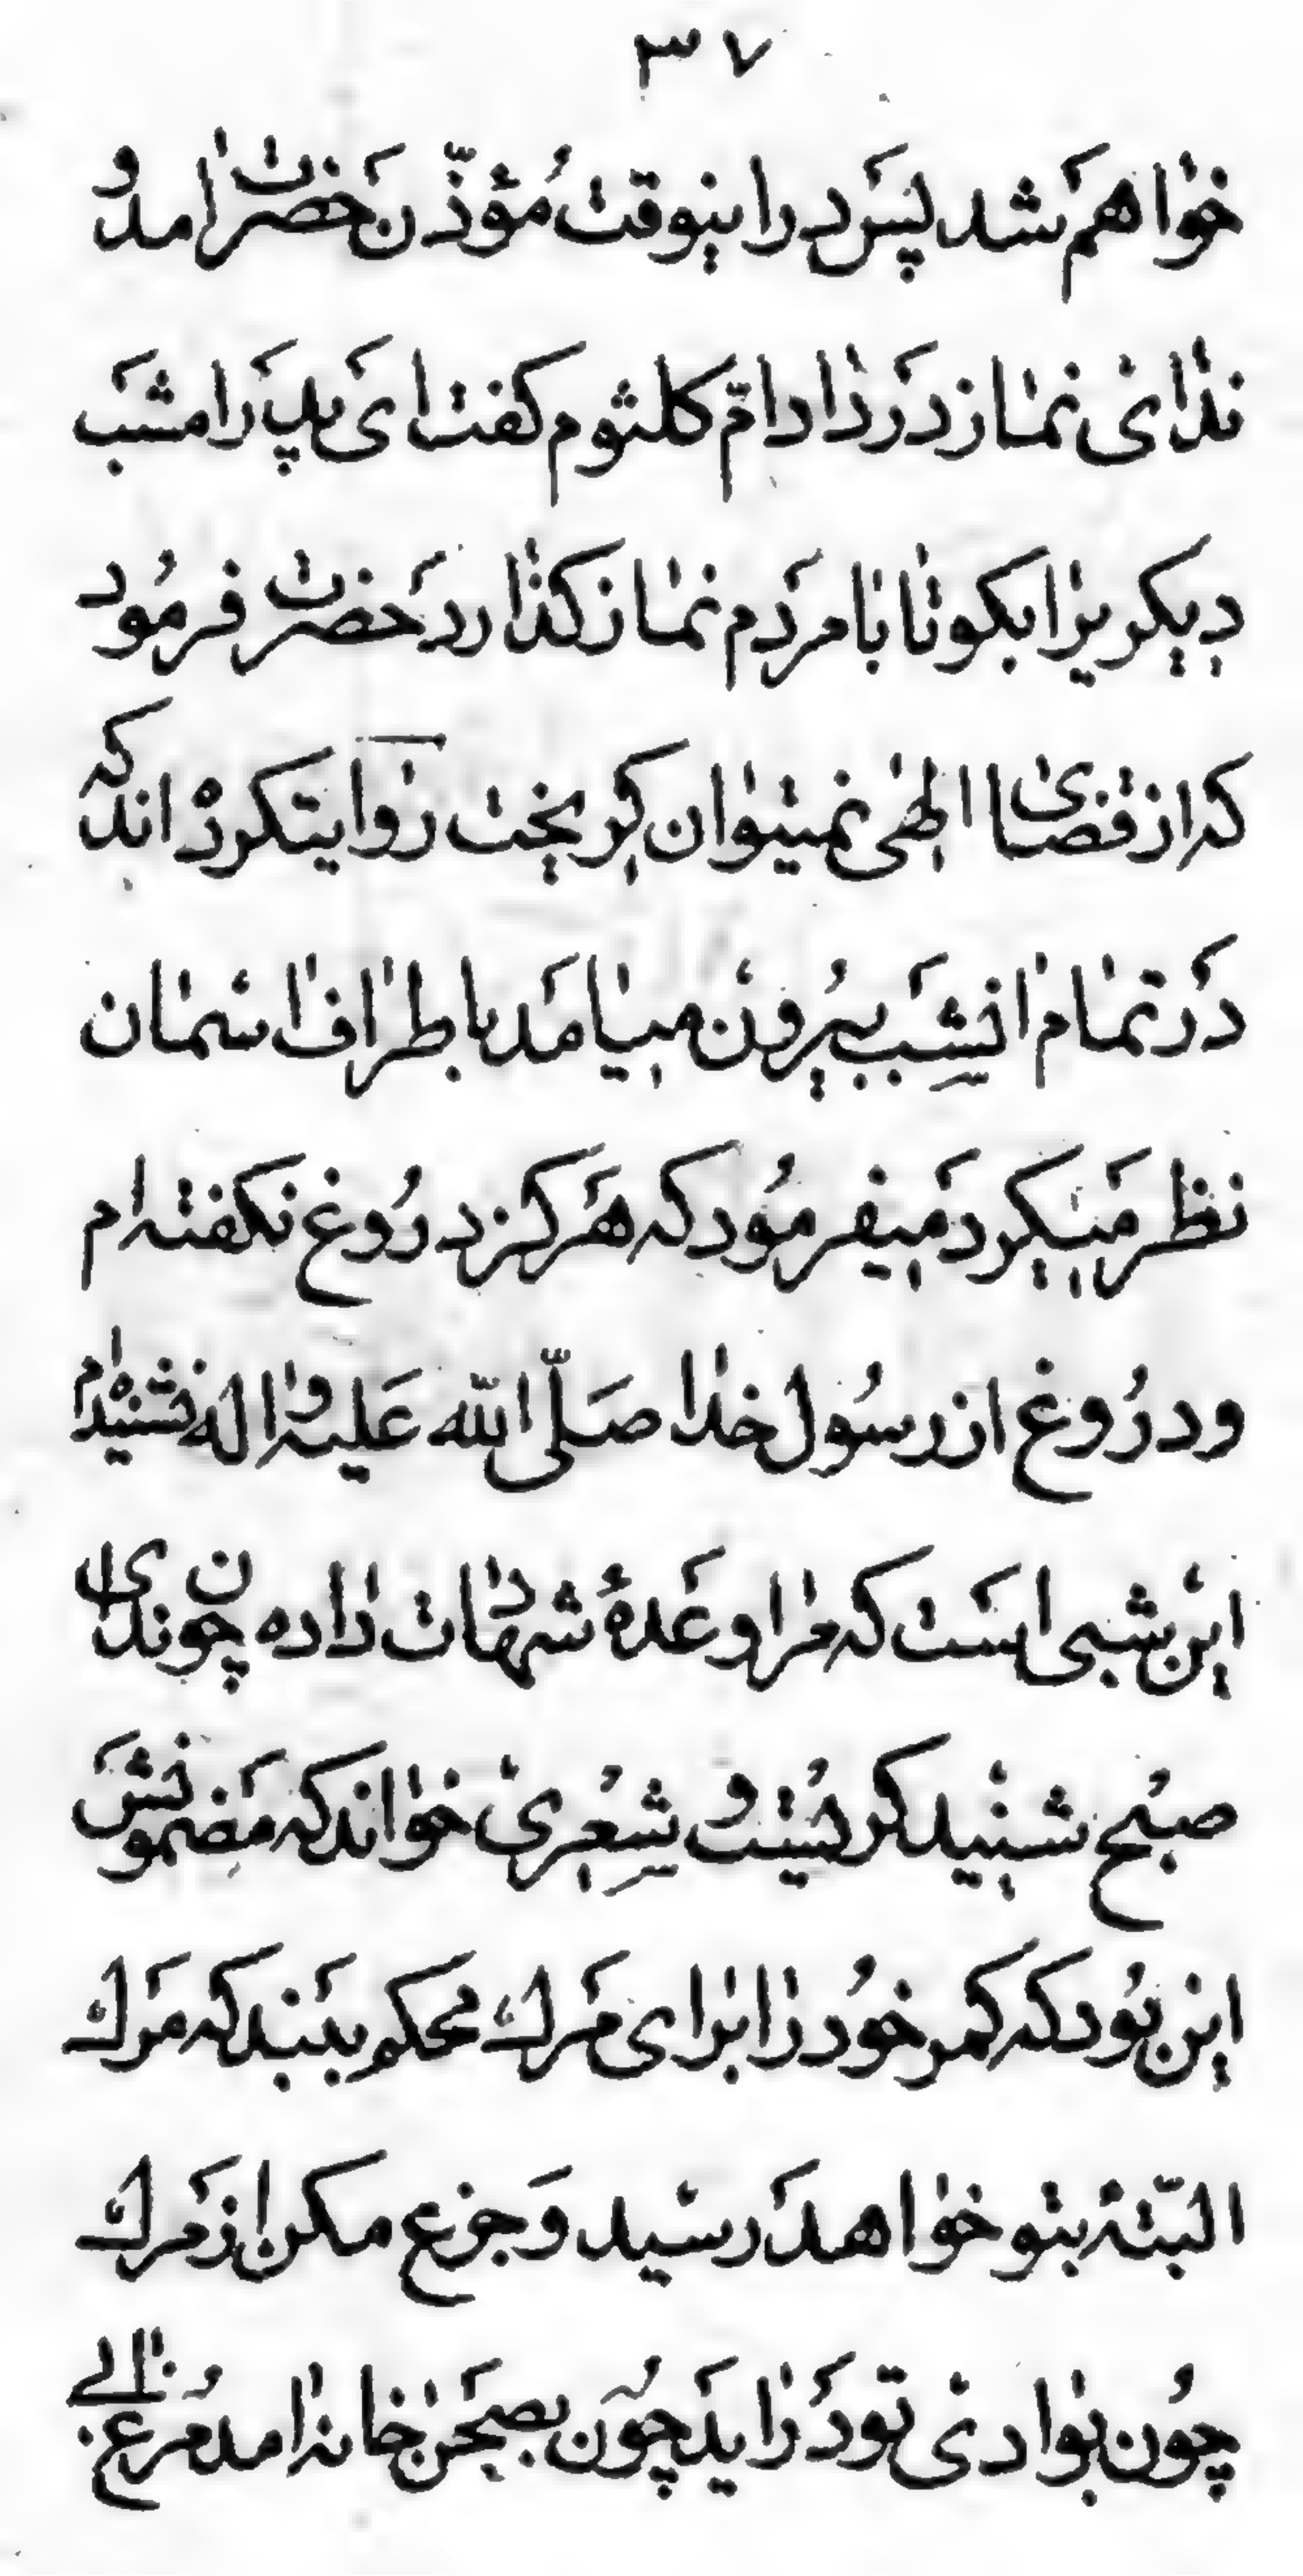 ۳۷
خواهم شد پس در اینوقت مؤذّن حضرت امد و
ندای نماز در داد امّ کلثوم کفت ای پدر امشب
دیکریرا بکو تا با مردم نماز کذارد حضرت فرمود
که از قضای الهی نمیتوان کریخت روایتکرده اند که
در تمام انشب بیرون میامد باطراف اسمان
نظر میکرد میفرمود که هرکز دروغ نکفته ام
و دروغ از رسول خدا صلّی اللّه علیه و اله نشنیده ام
این شبی است که مرا وعدهٔ شهادت داده چون ندای
صبح شنید کریست و شعری خواند که مضمونش
این بود که کمر خود را برای مرك محکم ببند که مرك
البتّه بتو خواهد رسید و جزع مکن از مرك
چون بوادی تو در اید چون بصحن خانه امد مرغابی